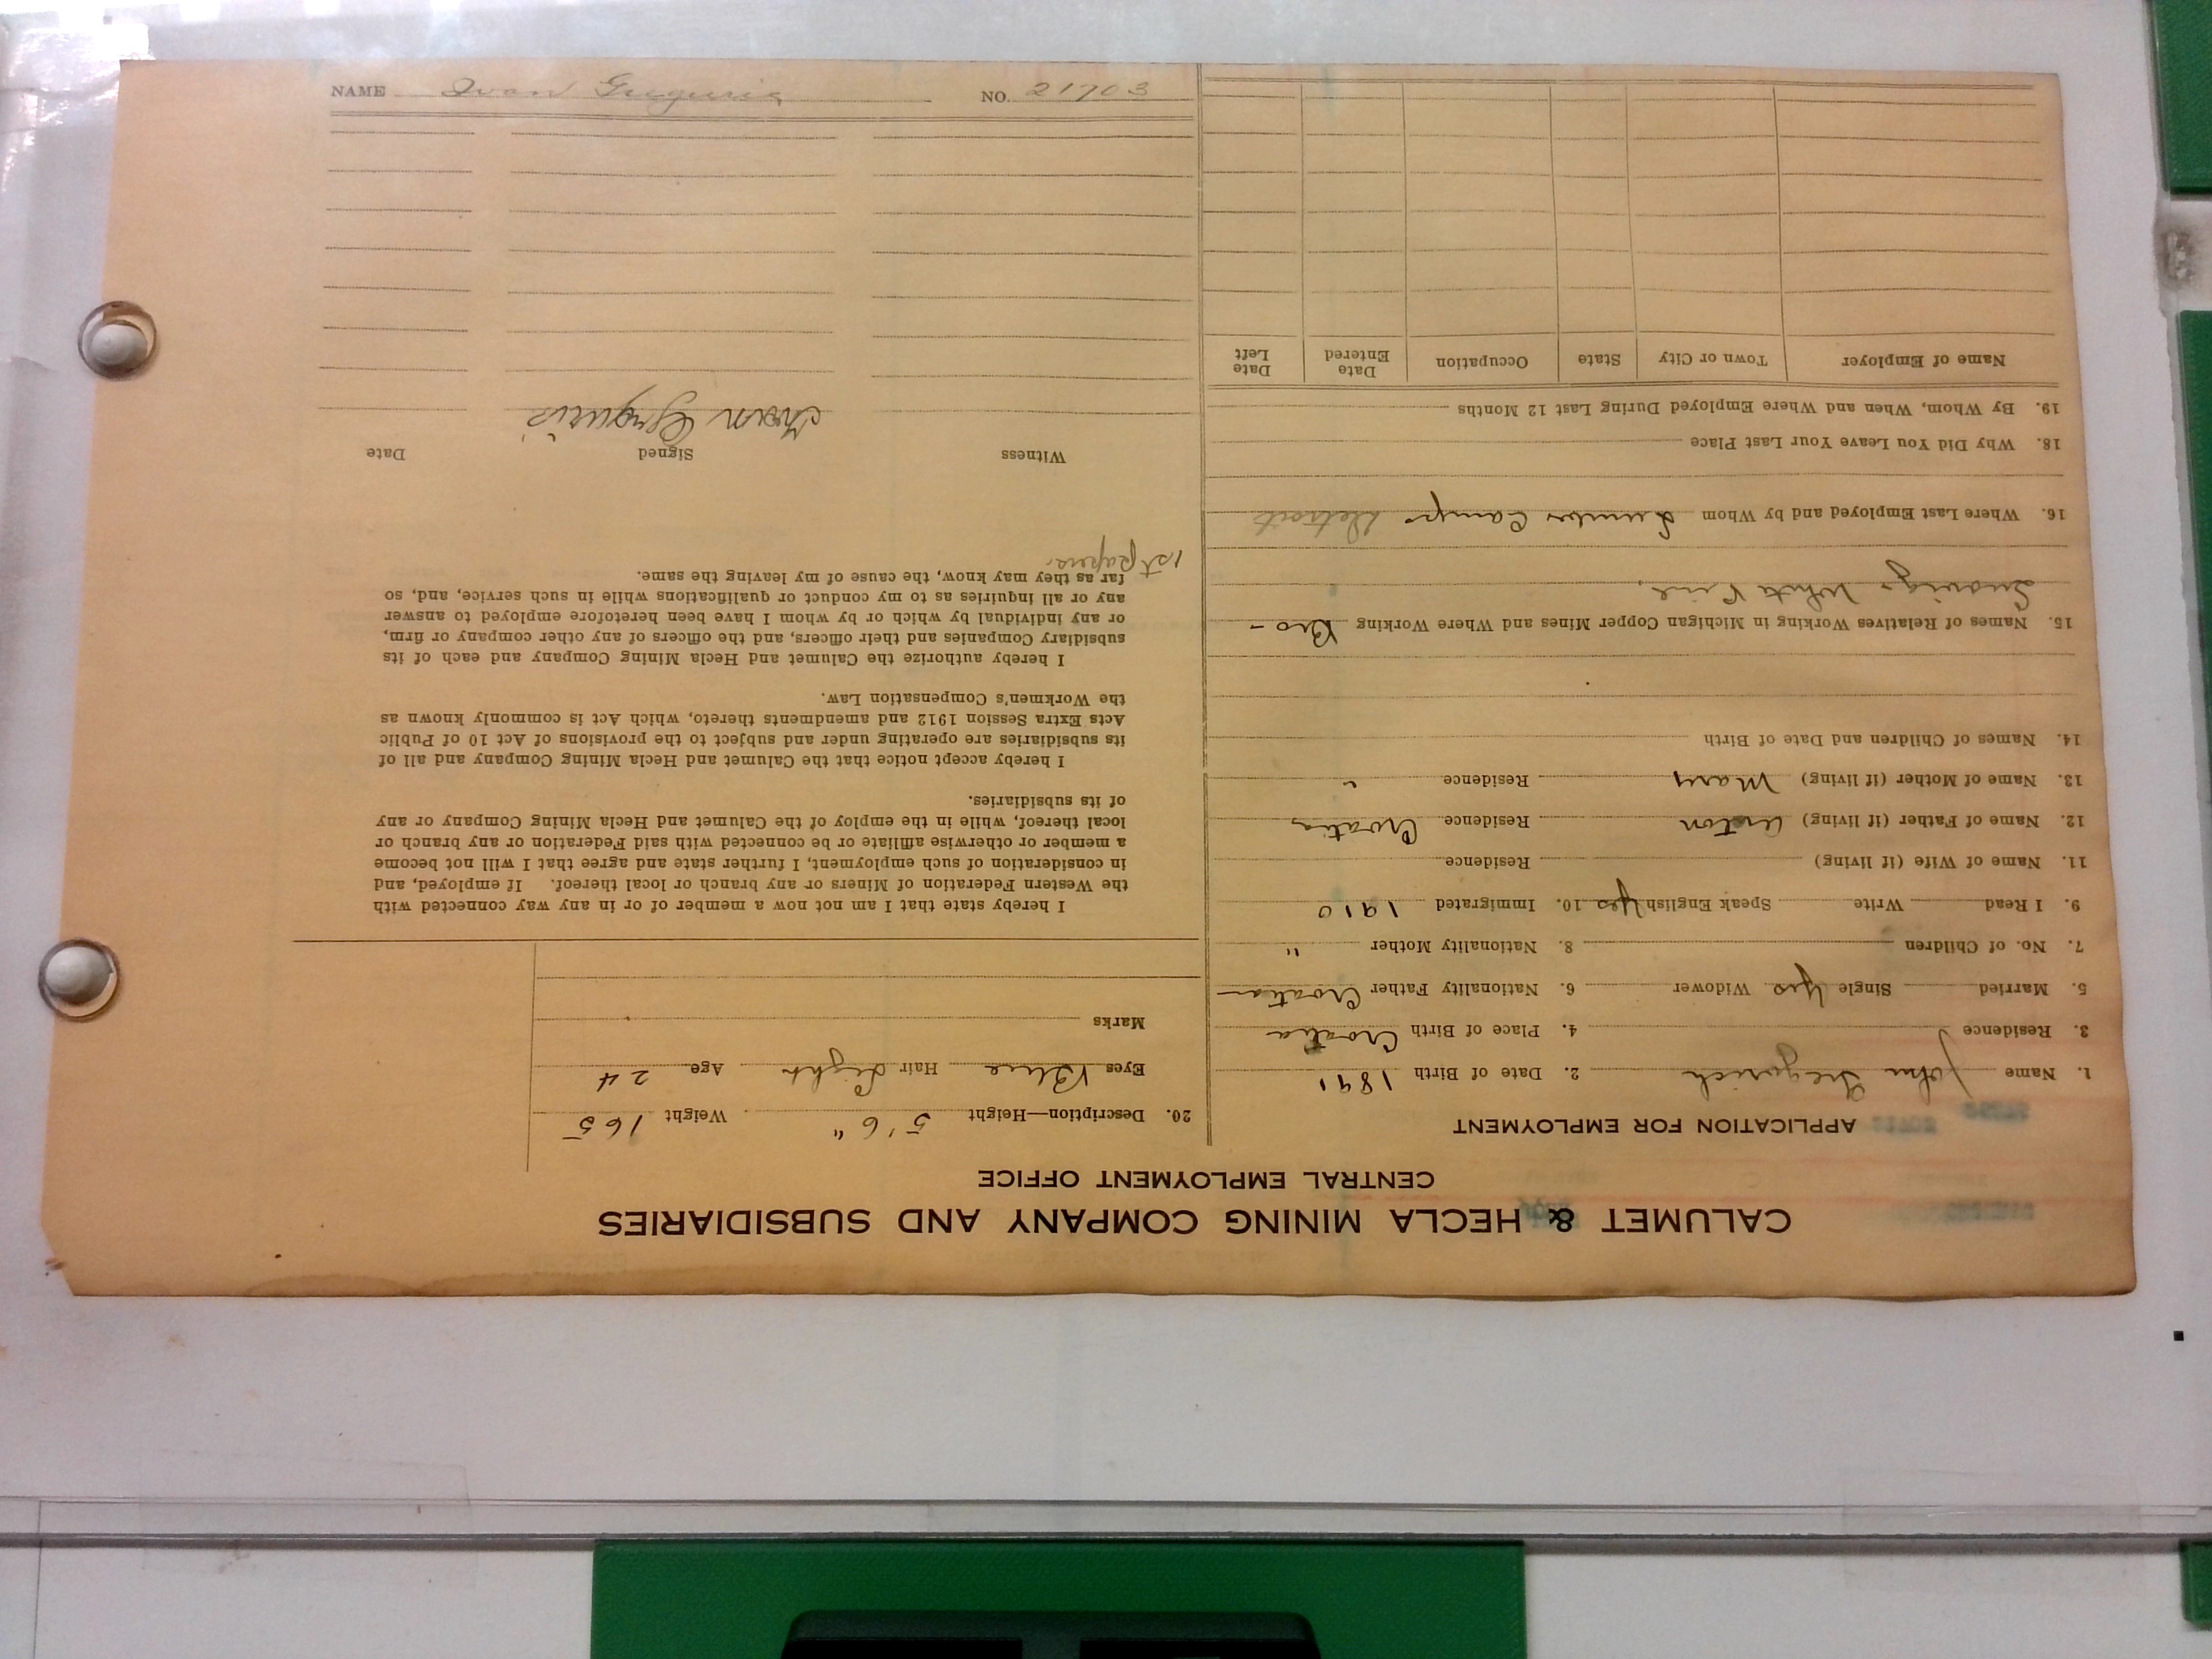 CALUMET & HECLA MINING COMPANY AND SUBSIDIARIES
CENTRAL EMPLOYMENT OFFICE
APPLICATION FOR EMPLOYMENT
1. Name John Gregorich 2. Date of Birth 1891
3. Residence 4. Place of Birth Croatia
5. Married Single Yes Widower 6. Nationality Father Croatian
7. No. of Children 8. Nationality Mother "
9. I Read Write Speak English Yes 10. Immigrated 1910
11. Name of Wife (if living) Residence
12. Name of Father (if living) Anton Residence Croatia
13. Name of Mother (if living) Mary Residence "
14. Names of Children and Date of Birth
15. Names of Relatives Working in Michigan Copper Mines and Where Working Bro-
White Pine.
16. Where Last Employed and by Whom Lumber Camps Detroit
18. Why Did You Leave Your Last Place
19. By Whom, When and Where Employed During Last 12 Months
Name of Employer Town or City State Occupation Date Entered Date Left
20. Description—Height 5' 6" Weight 165
Eyes Blue Hair Light Age 24
Marks
I hereby state that I am not now a member of or in any way connected with
the Western Federation of Miners or any branch or local thereof. If employed, and
in consideration of such employment, I further state and agree that I will not become
a member or otherwise affiliate or be connected with said Federation or any branch or
local thereof, while in the employ of the Calumet and Hecla Mining Company or any
of its subsidiaries.
I hereby accept notice that the Calumet and Hecla Mining Company and all of
its subsidiaries are operating under and subject to the provisions of Act 10 of Public
Acts Extra Session 1912 and amendments thereto, which Act is commonly known as
the Workmen's Compensation Law.
I hereby authorize the Calumet and Hecla Mining Company and each of its
subsidiary Companies and their officers, and the officers of any other company or firm,
or any individual by which or by whom I have been heretofore employed to answer
any or all inquiries as to my conduct or qualifications while in such service, and, so
far as they may know, the cause of my leaving the same.
1st papers
Witness Signed Date
Ivan
NAME Ivan NO. 21703